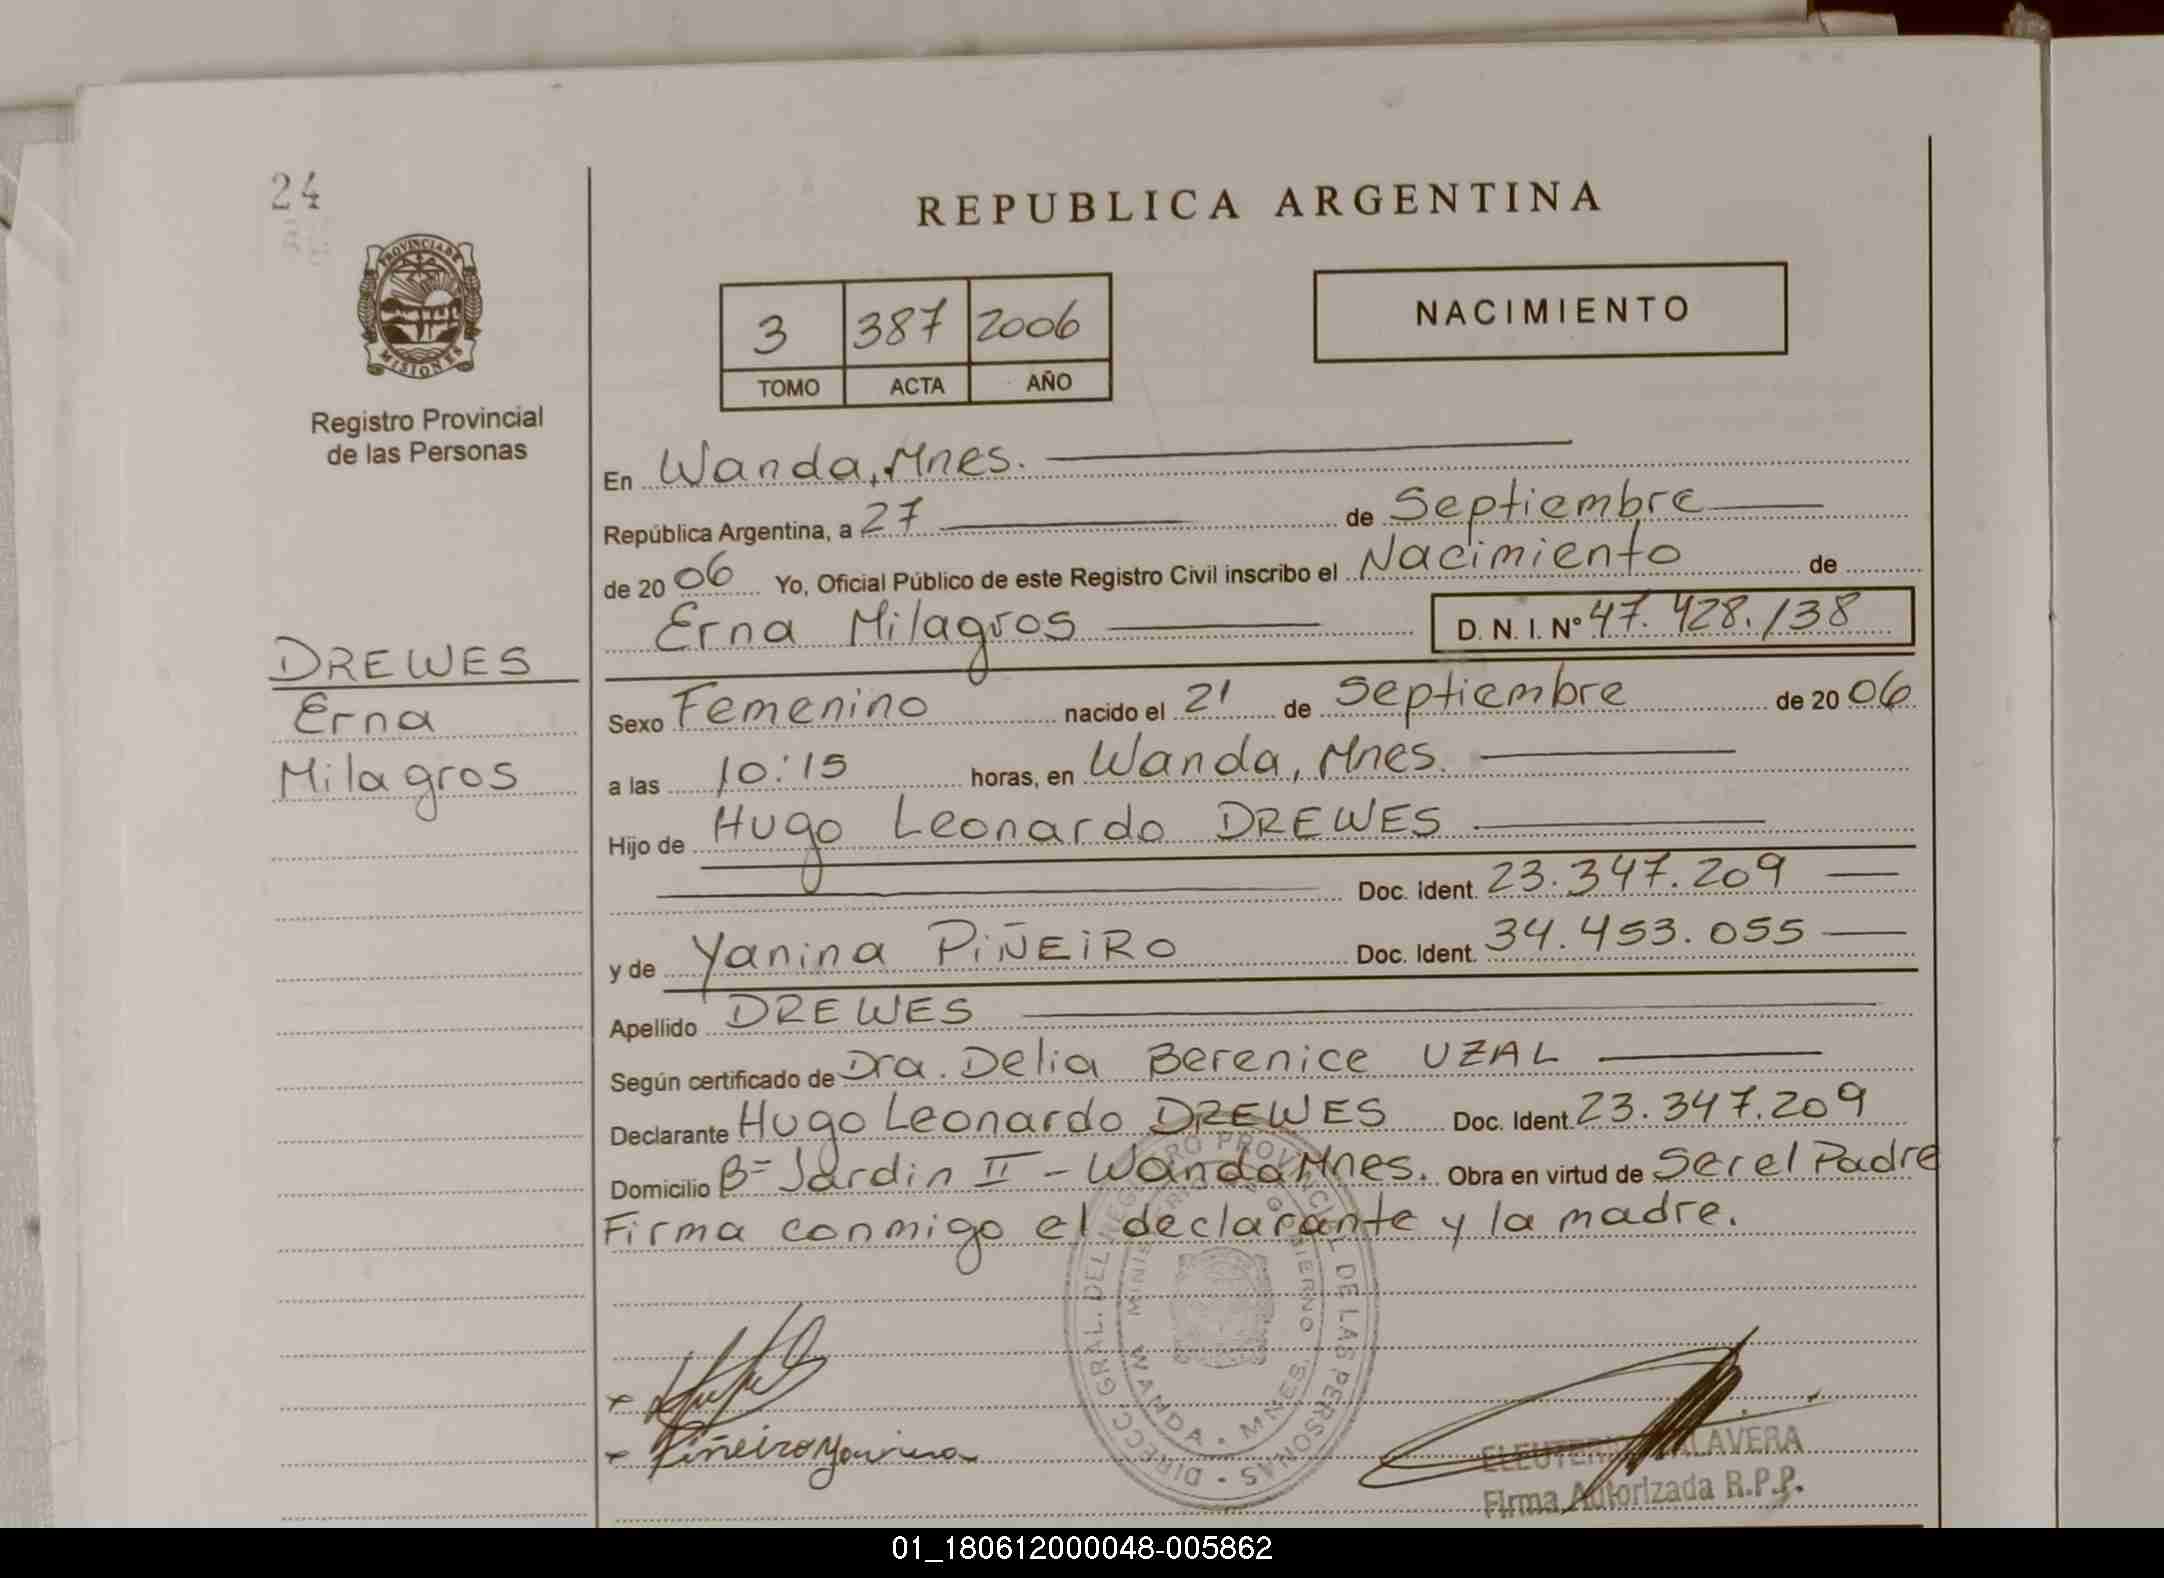 24
PROVINCIA DE
MISIONES
Registro Provincial
de las Personas
DREWES
Erna
Milagros
REPUBLICA ARGENTINA
3 387 2006
TOMO ACTA AÑO
NACIMIENTO
En Wanda, Mnes.
República Argentina, a 27 de Septiembre
de 20 06 Yo, Oficial Público de este Registro Civil inscribo el Nacimiento de
Erna Milagros D. N. I. Nº 47.428.138
Sexo Femenino nacido el 21 de Septiembre de 20 06
a las 10:15 horas, en Wanda, Mnes.
Hijo de Hugo Leonardo DREWES
Doc. Ident. 23.347.209
y de Yanina PIÑEIRO Doc. Ident. 34.453.055
Apellido DREWES
Según certificado de Dra. Delia Berenice UZAL
Declarante Hugo Leonardo DREWES Doc. Ident. 23.347.209
Domicilio Bº Jardin II - Wanda Mnes. Obra en virtud de Ser el Padre
Firma conmigo el declarante y la madre.
DIRECC. GRAL. DEL REGISTRO PROVINCIAL DE LAS PERSONAS
WANDA - MNES.
Piñeiro Yanina
Firma Autorizada R.P.P.
01_180612000048-005862